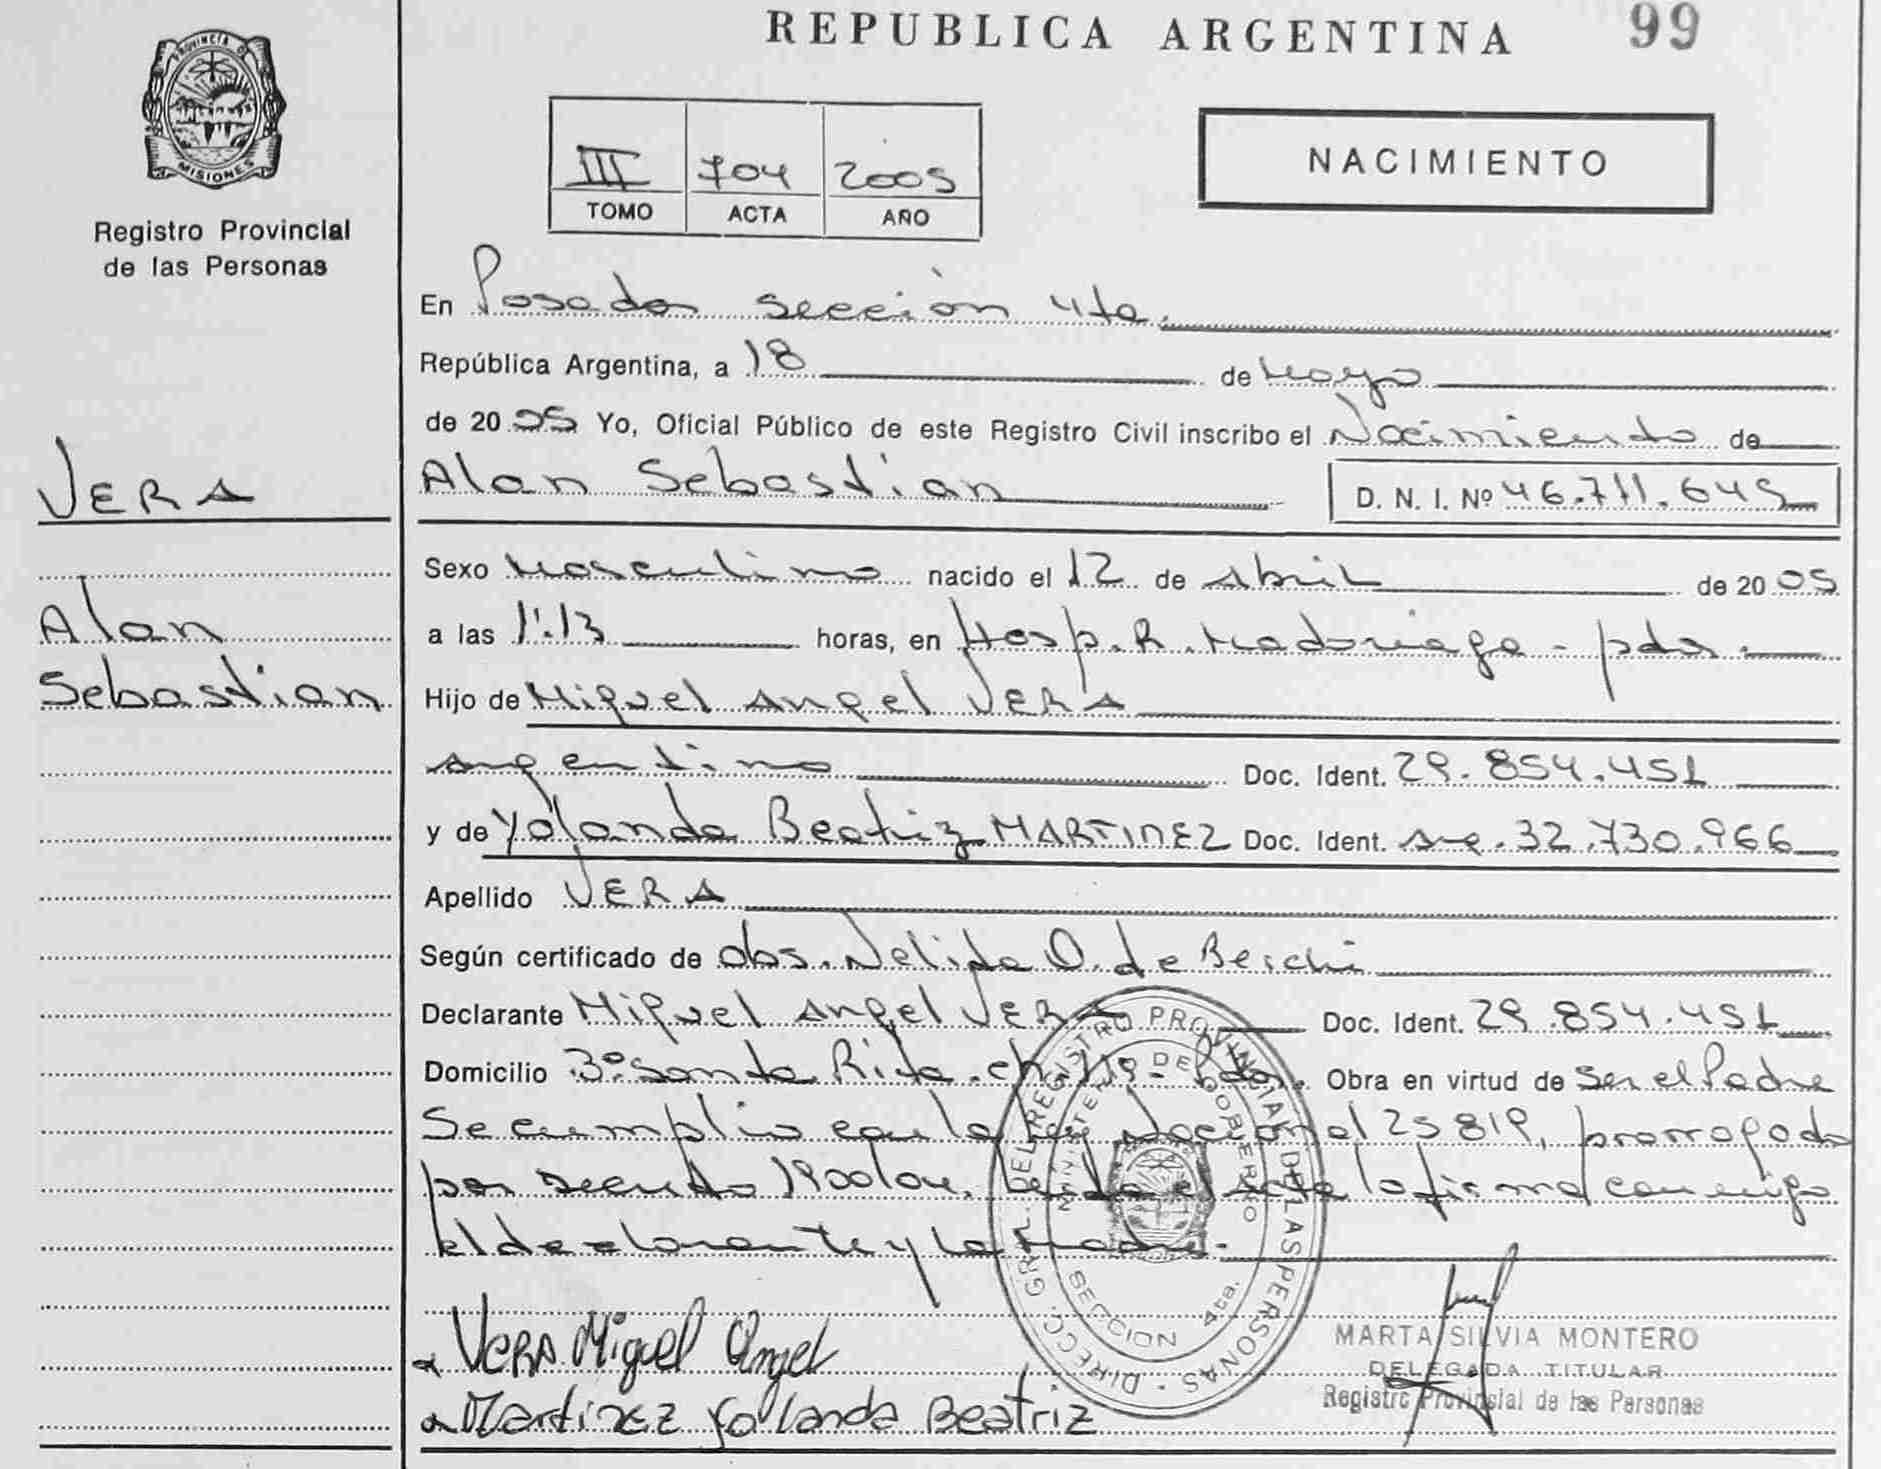 REPUBLICA ARGENTINA 99
PROVINCIA DE MISIONES
Registro Provincial
de las Personas
III 704 2005
TOMO ACTA AÑO
NACIMIENTO
En Posadas sección 4ta.
República Argentina, a 18 de Mayo
de 2005 Yo, Oficial Público de este Registro Civil inscribo el Nacimiento de
VERA
Alan
Sebastian
Alan Sebastian D. N. I. Nº 46.711.645
Sexo Masculino nacido el 12 de Abril de 2005
a las 1:13 horas, en Hosp. R. Madariaga - pdas.
Hijo de Miguel Angel VERA
Argentino Doc. Ident. 29.854.451
y de Yolanda Beatriz MARTINEZ Doc. Ident. Arg. 32.730.966
Apellido VERA
Según certificado de obs. Nelida O. de
Declarante Miguel Angel VERA Doc. Ident. 29.854.451
Domicilio Bº Santa Rita. ch. Pdas. Obra en virtud de ser el Padre
Se cumplio con la ley Nacional 25819, prorrogada
por decreto 1900/04. Leída el acta la firma conmigo
el declarante y la Madre.
DIRECC. GRAL. DEL REGISTRO PROVINCIAL DE LAS PERSONAS
MINISTERIO DE GOBIERNO
SECCION 4ta.
VERA Miguel Angel
Martinez Yolanda Beatriz
MARTA SILVIA MONTERO
DELEGADA TITULAR
Registro Provincial de las Personas